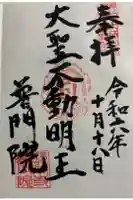 奉拝
令和六年
十月十六日
大聖不動明王
普門院